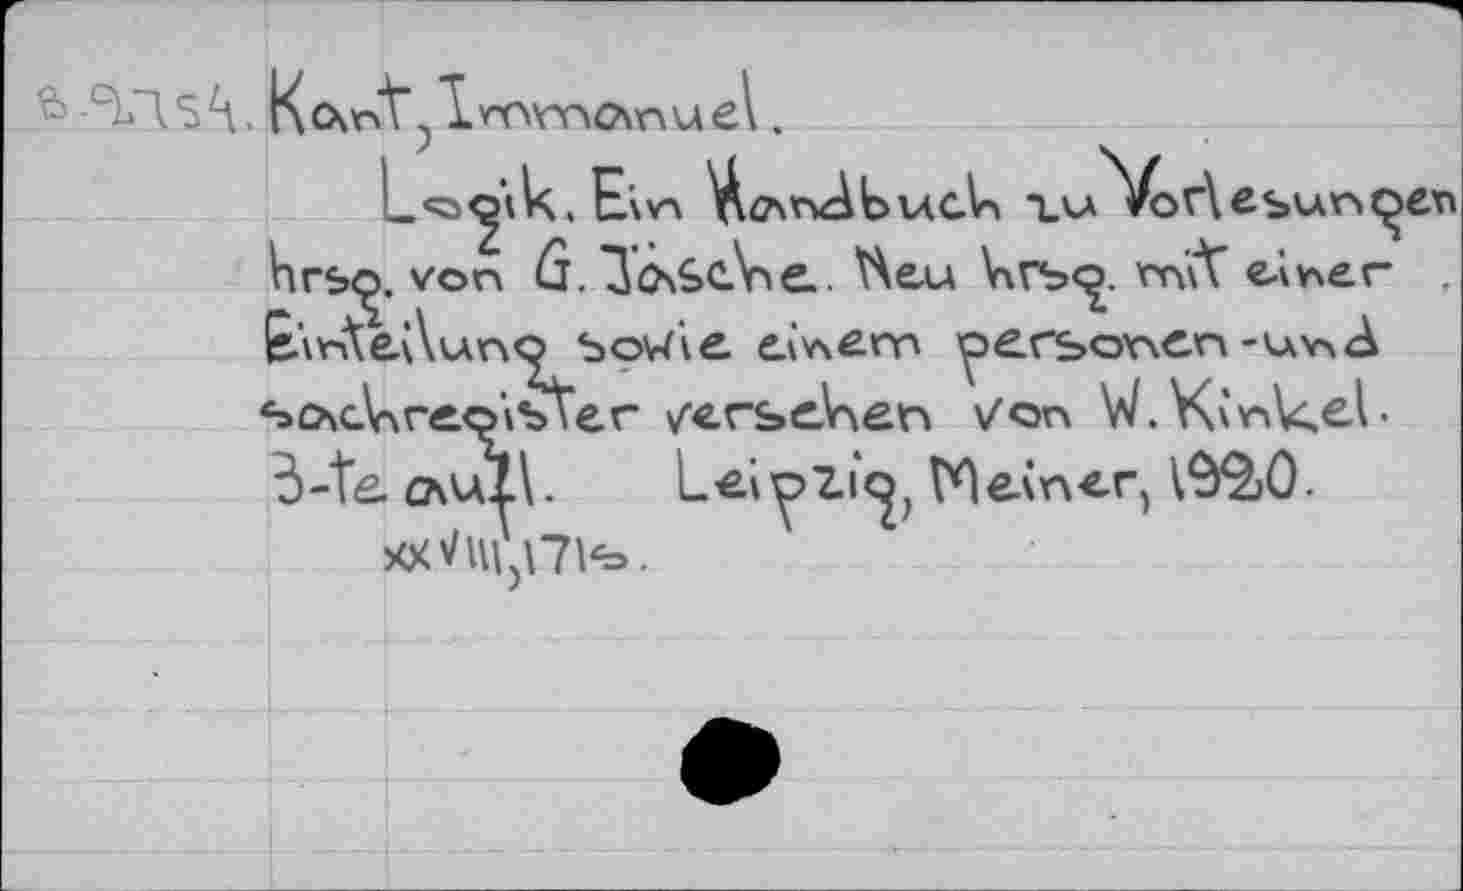 Kant, Immanuel.
Logik. Ein Handbuch zu Vorlesungen
hrsg. von G. Jäsche. Neu hrsg. mit einer
Einteilung sowie einem personen-und
sachregister versehen von W. Kinkel.
3-te aufl. Leipzig, Meiner, 1920.
xxviii, 171 s.